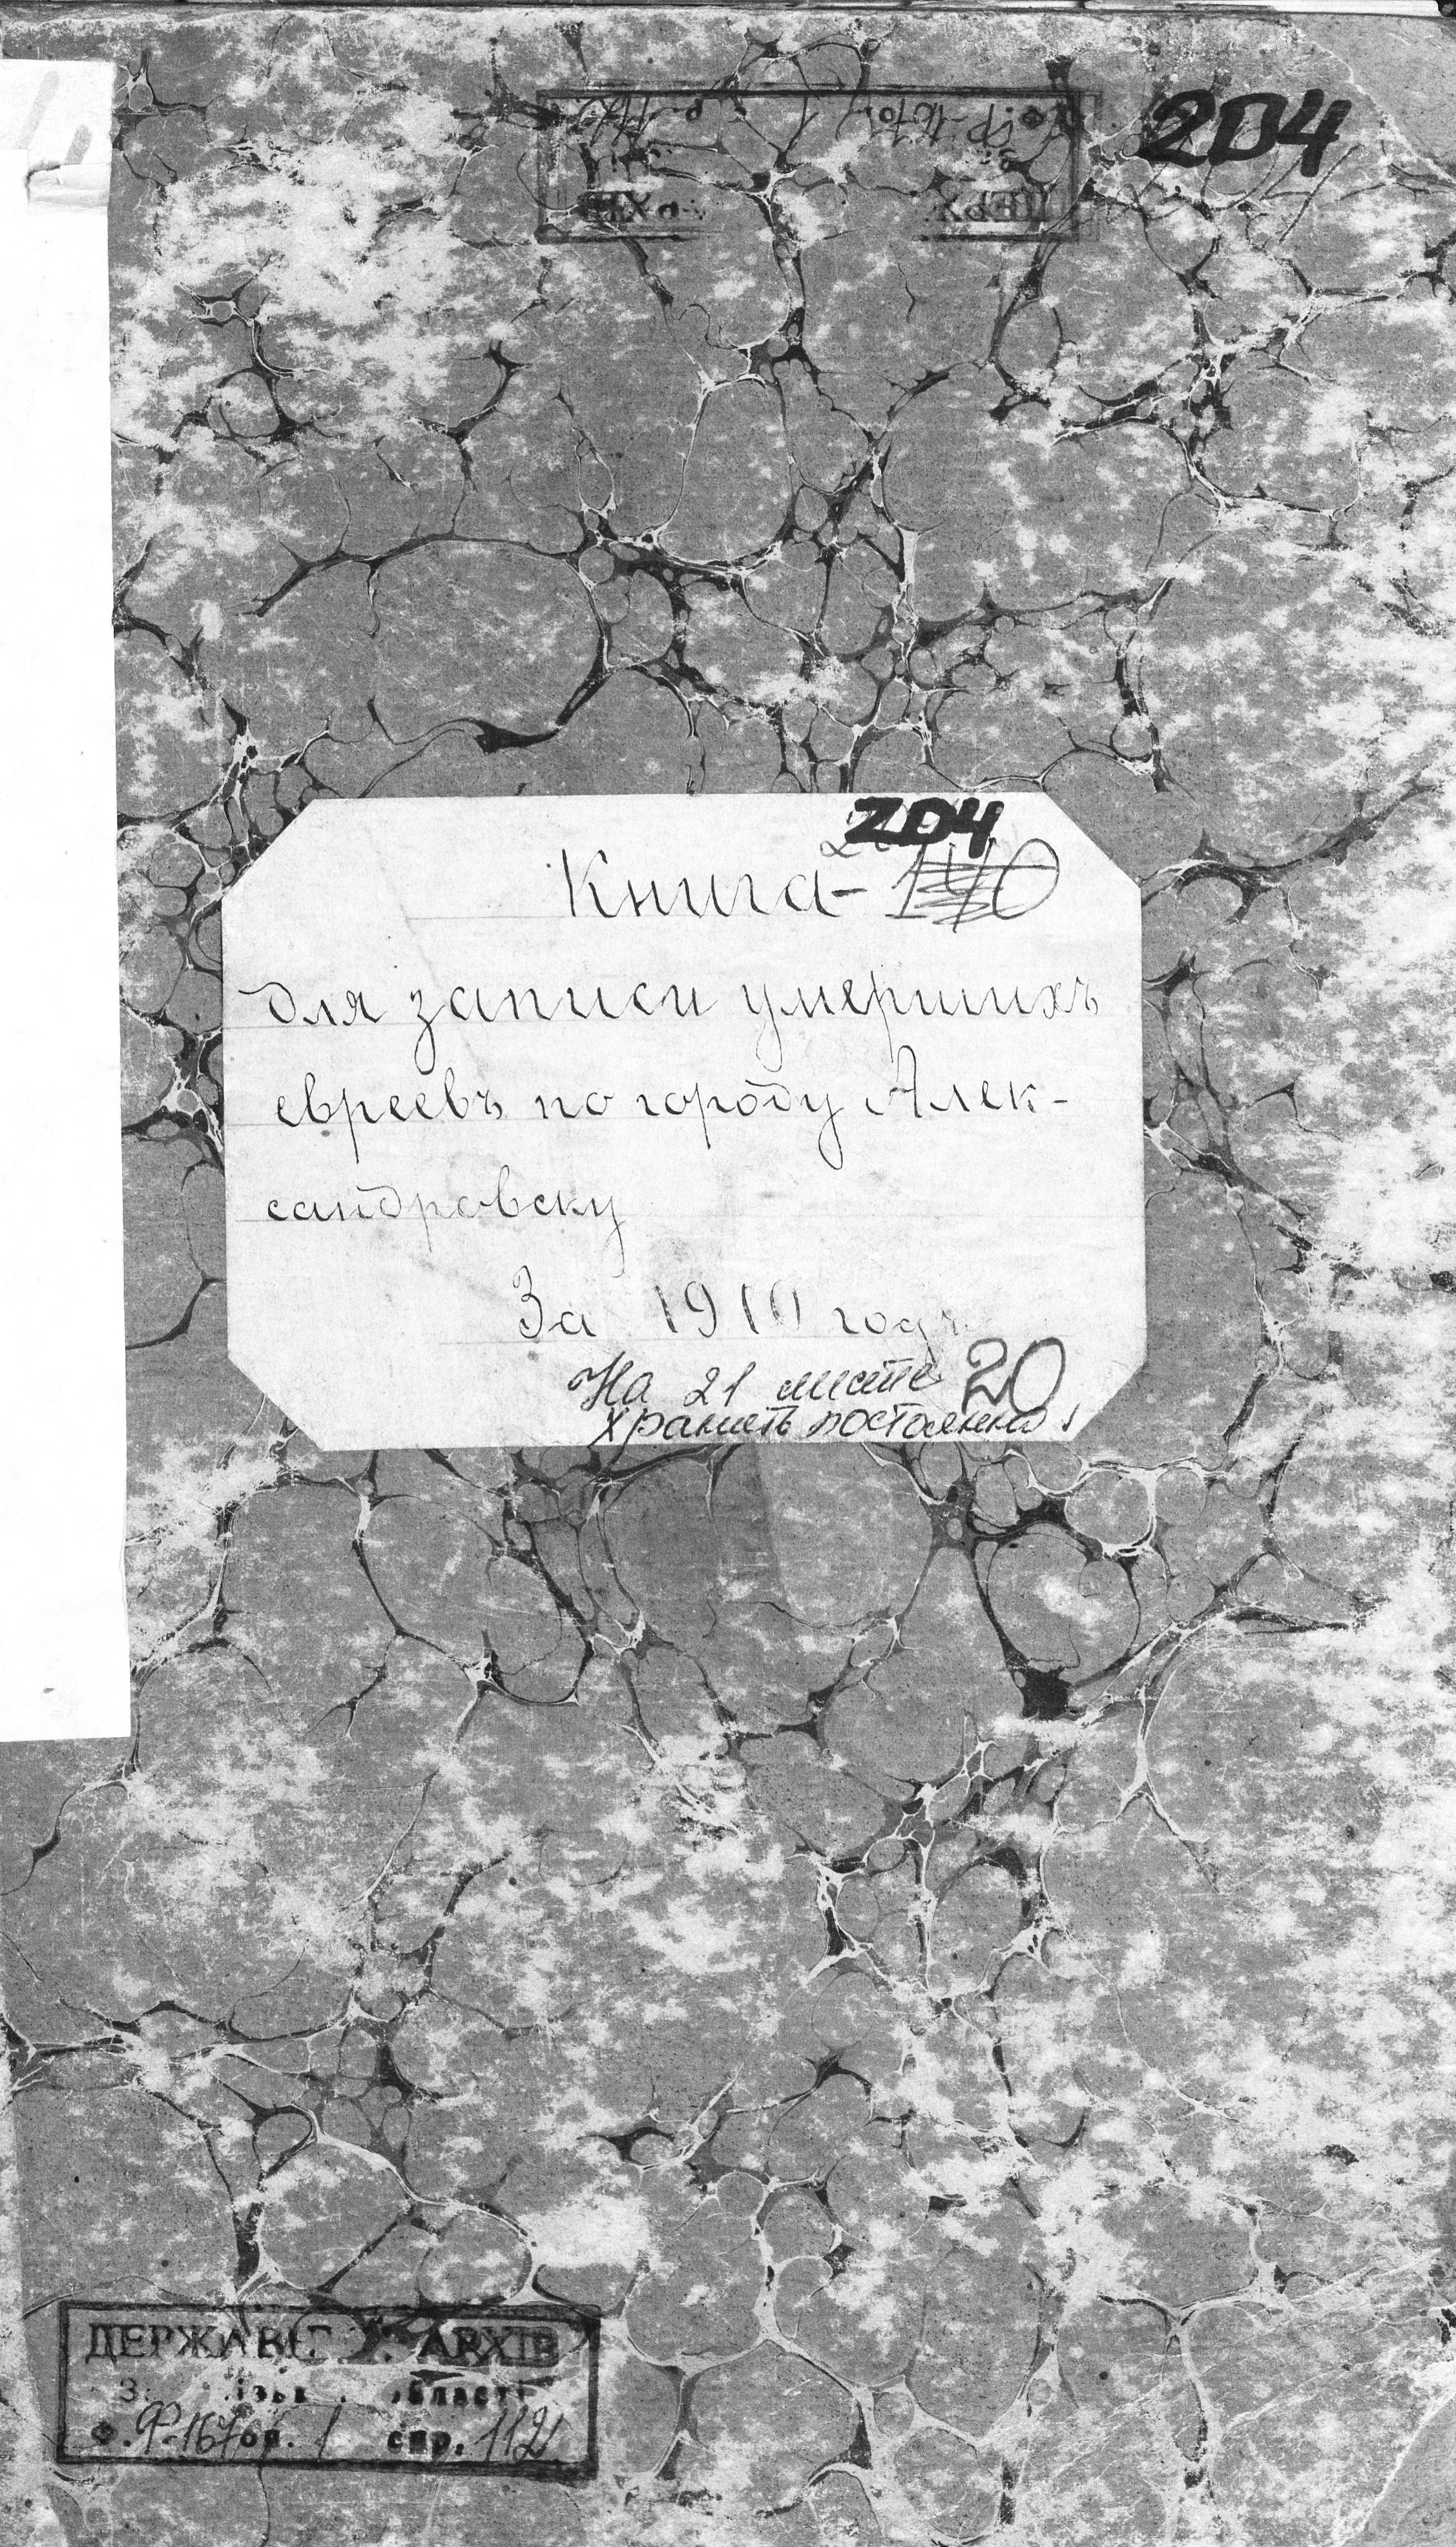 204
204
Книга - 140
для записи умершихъ
евреевъ по городу Алек-
сандровску
За 1910 годъ
На 21 листе 20
хранить постоянно
ДЕРЖАВ АРХІВ
області
Ф. Р-167 оп. 1 спр. 112